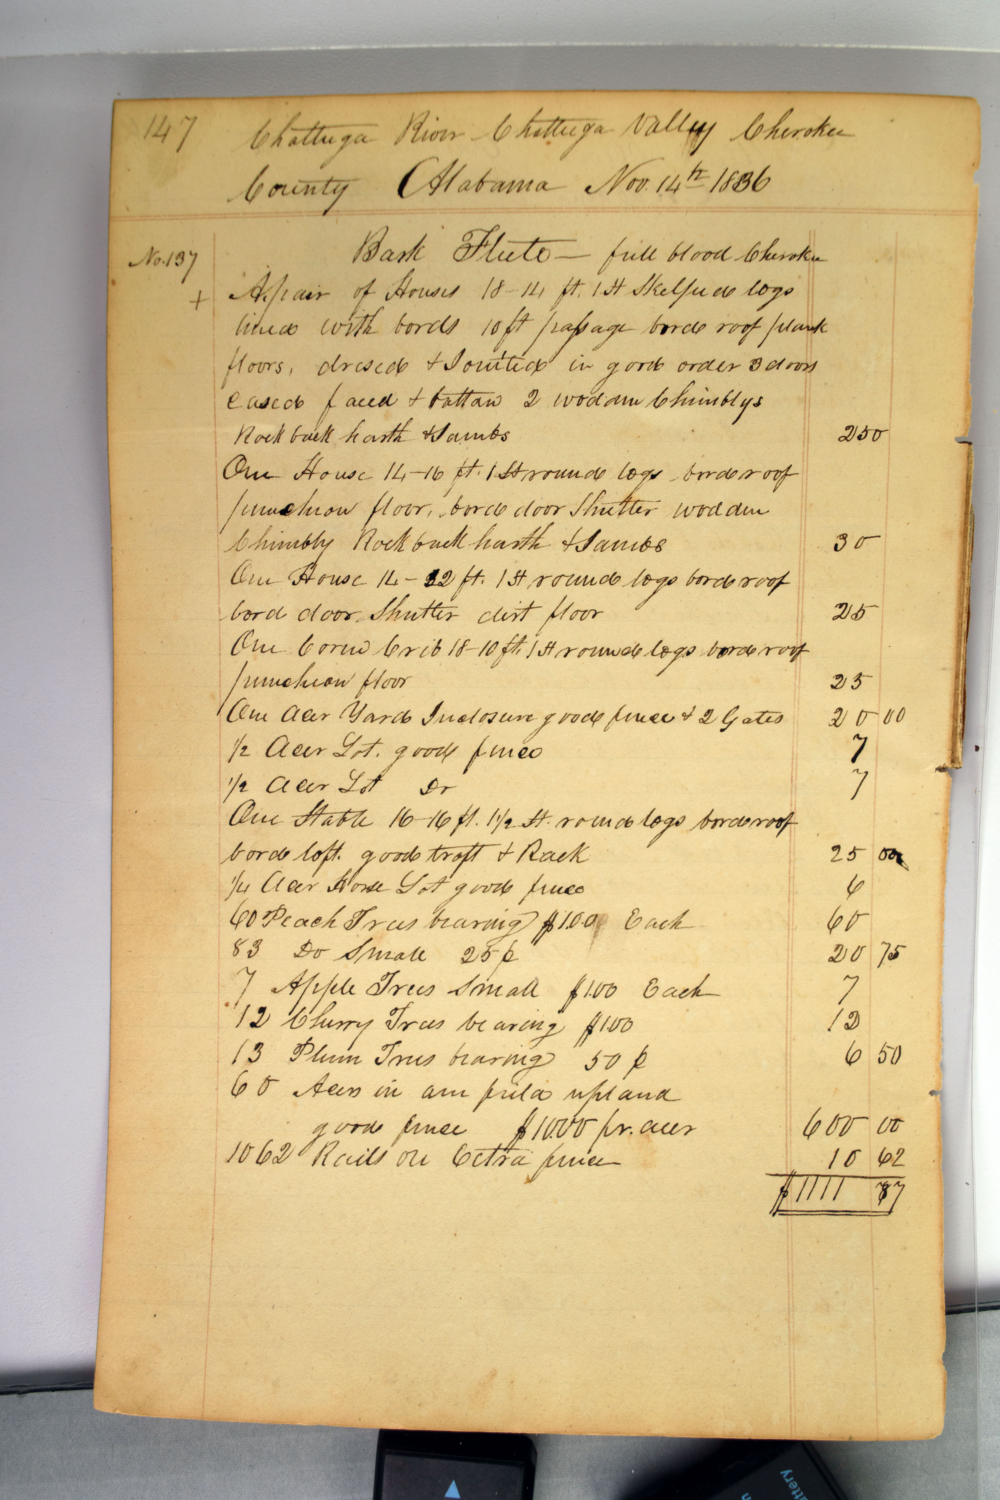 147 Chattuga River Chattuga Valley Cherokee
County Alabama Nov. 14th 1836
No. 137 Bark Flute — full blood Cherokee
+ A pair of Houses 18-14 ft. 1 St Skelped logs
lined with bords 10 ft passage bord roof plank
floors, dresed & Jointed in good order 3 doors
Cased faced & battan 2 wodden Chimblys
Rock back harth & Jambs 250
One House 14-16 ft. 1 St round logs bord roof
puncheon floor, bord door Shutter wodden
Chimbly Rock back harth & Jambs 30
One House 14-12 ft. 1 St round logs bord roof
bord door Shutter dirt floor 25
One Corn Crib 18-10 ft. 1 St round logs bord roof
puncheon floor 25
One Acer Yard Inclosure good fence & 2 Gates 20 00
1/2 Acer Lot. good fence 7
1/2 Acer Lot Do 7
One Stable 16-16 ft. 1 1/2 St. round logs bord roof
bord loft. good troft & Rack 25 00
1/4 Acer Horse Lot good fence 6
60 Peach Trees bearing $1 00 Each 60
83 Do Small 25 ¢ 20 75
7 Apple Trees Small $1 00 Each 7
12 Cherry Trees bearing $1 00 12
13 Plum Trees bearing 50 ¢ 6 50
60 Acers in one field upland
good fence $10 00 pr. acer 600 00
1062 Rails on Extra fence 10 62
$1111 87
ttery